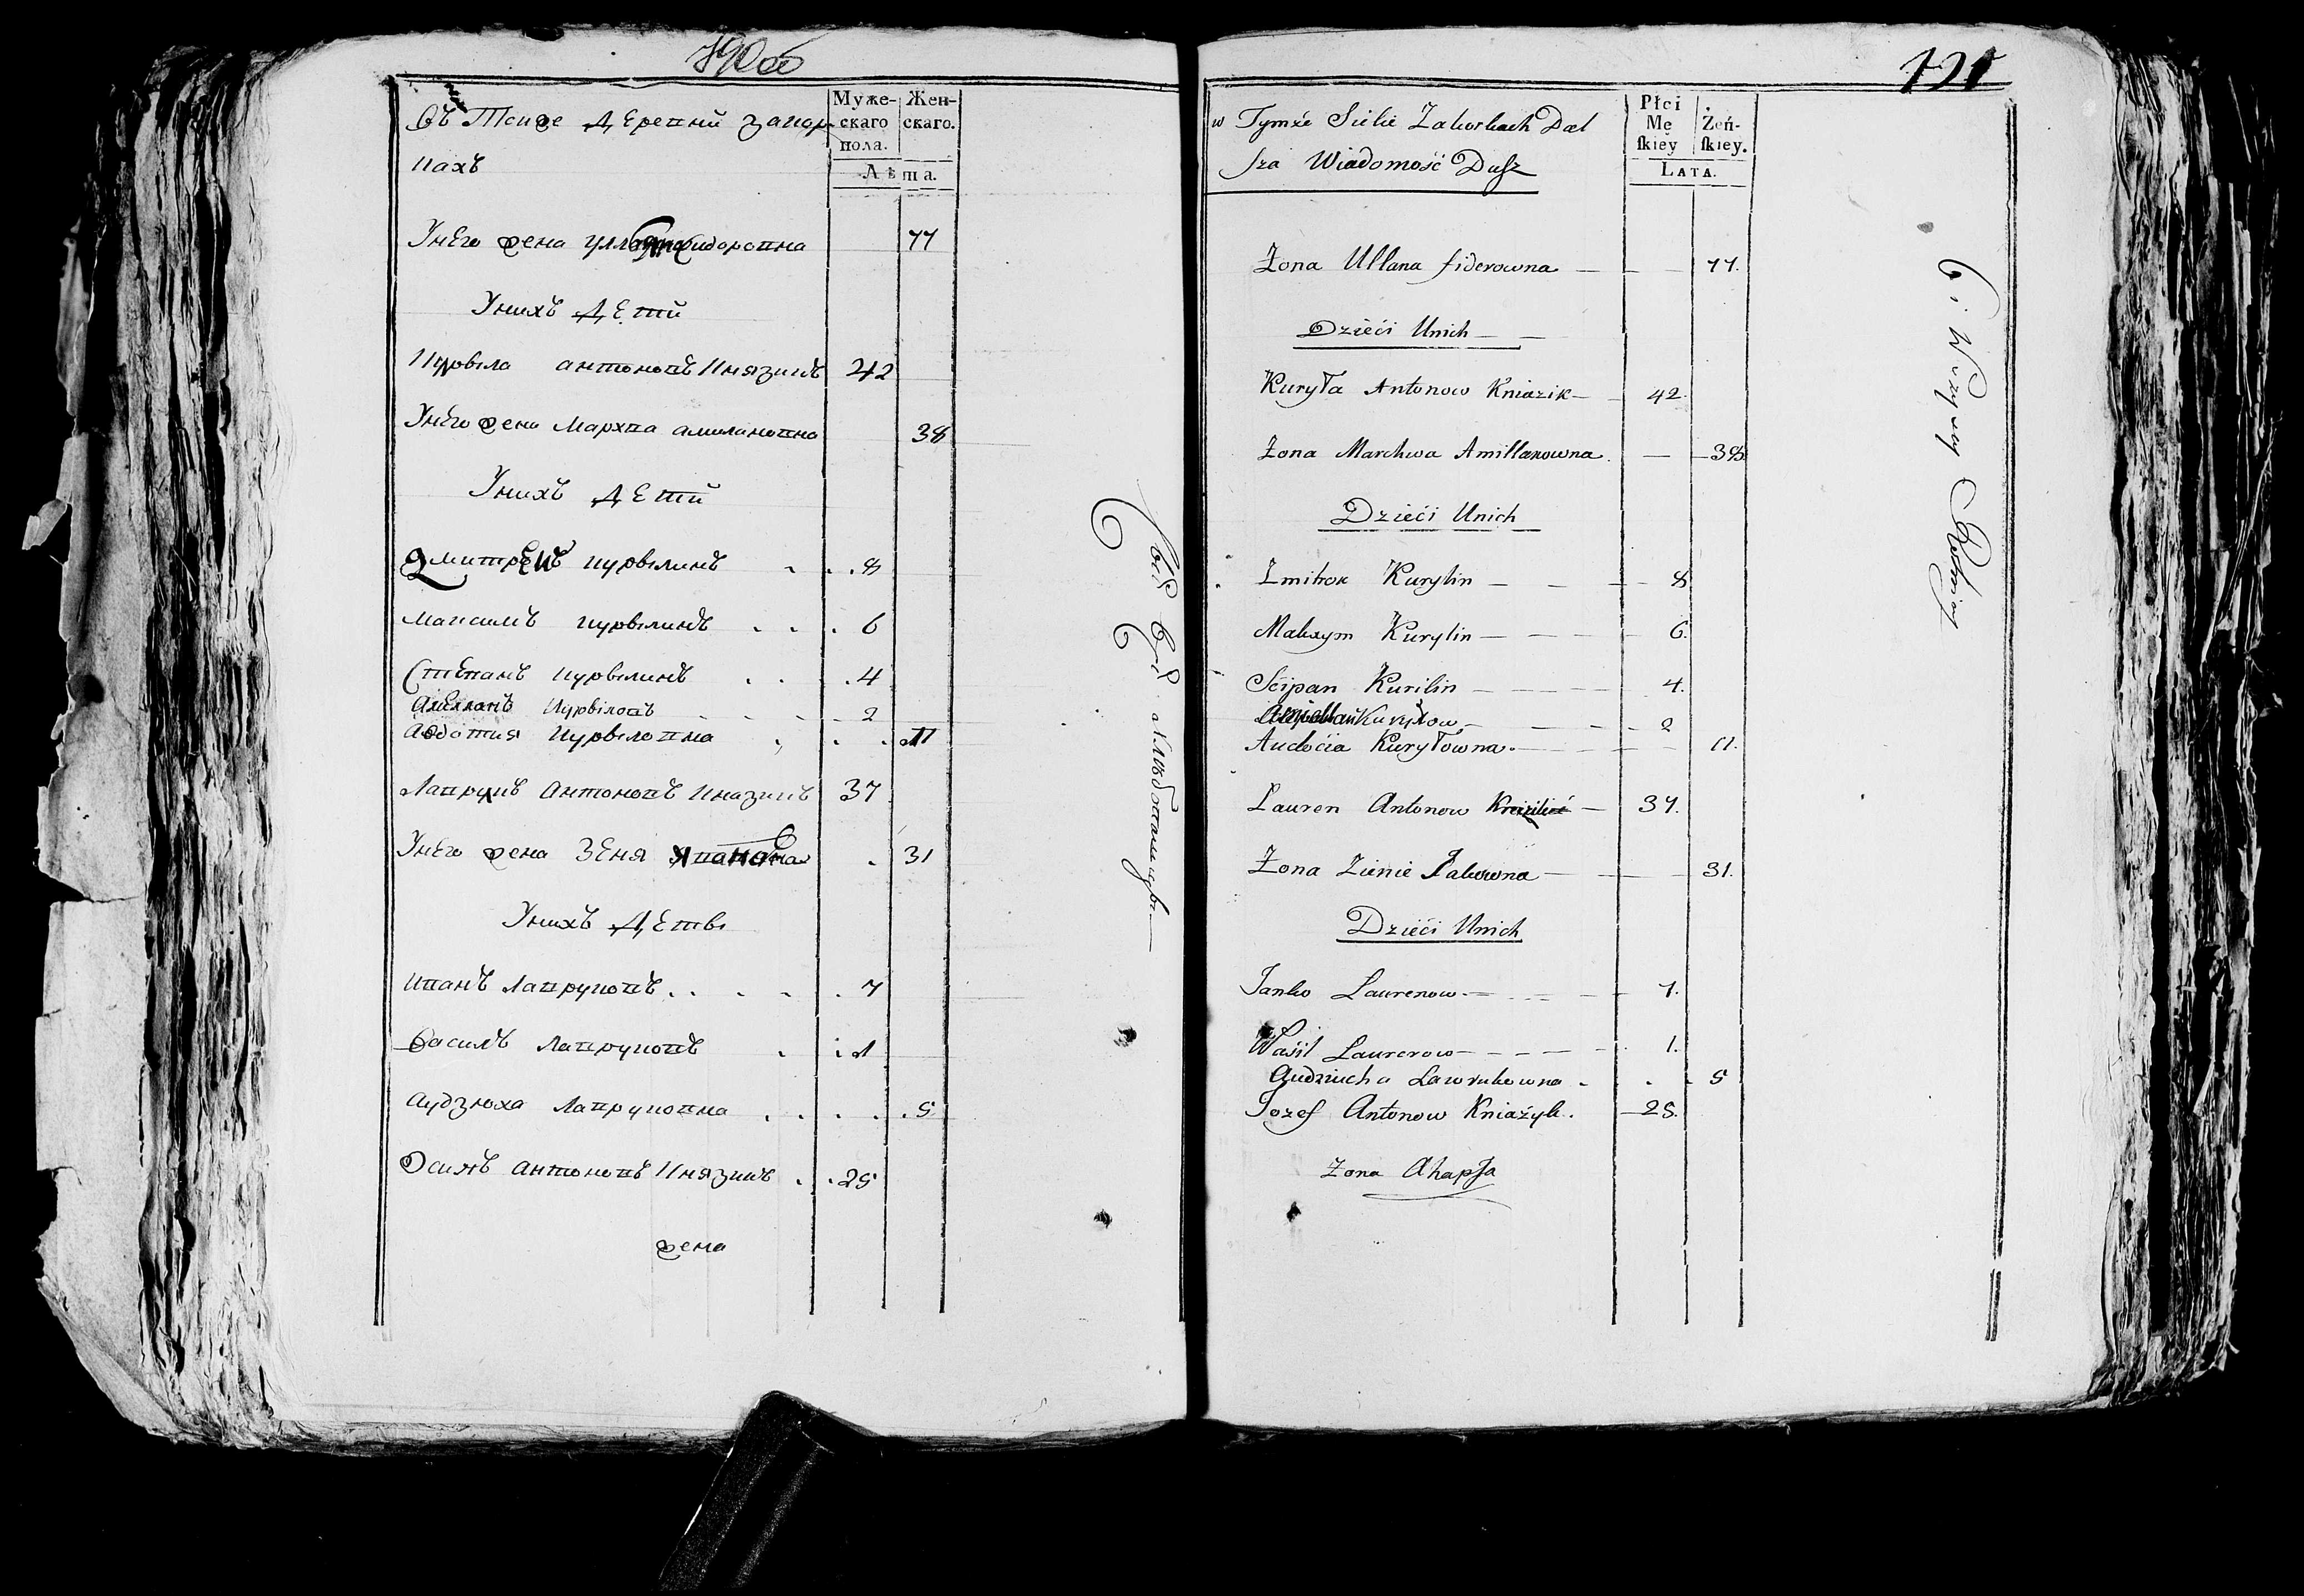 190 об
Въ Тойже Деревни Закор
Муже-
скаго
пола.
Жен-
скаго.
Лѣта.
кахъ
Унего жена 77
Унихъ Дети
Курыла антоновъ Князикъ 42
Унего жена Мархва амиляновна 38
Унихъ Дети
Змитрекъ курылинъ . . . 8
Максимъ курылинъ . . . 6
Степанъ курылинъ . . . 4
Амеллянъ Курыловъ . . . 2
Авдотия Курыловна . . . 11
Лаврукъ Антоновъ Князикъ 37
Унего жена Зеня 31
Унихъ Дети
Иванъ Лавруковъ . . . . 7
Василъ Лавруковъ . . 1
Аудзюха Лавруковна . . . . . 5
Осипъ антоновъ Князикъ . . 25
жена
191
w Tymże Siele Zakorkach Dal
Płci
Mę
ſkiey
Żeń-
ſkiey.
LATA.
sza Wiadomość Dusz
Żona Ullana fiderowna — — — 77.
Dzieći Unich — —
Kuryła Antonow Kniazik — 42.
Żona Marchwa Amillanowna. — — 38
Dzieći Unich
Zmitrok Kurylin — — — 8
Maksym Kurylin — — — 6.
Sćipan Kurilin — — — — 4.
Amiellan Kuryłow — — — 2
Audoćia Kuryłowna. — — — 11.
Lauren Antonow — 37.
Żona Zienie Jakowna — — — 31.
Dzieći Unich
Janko Laurenow — — — 7.
Waśil Laurenow — — — — 1.
Audziucha Lawrukowna . . . 5
Jozef Antonow Kniaźyk. — 25.
Żona Ahapsa